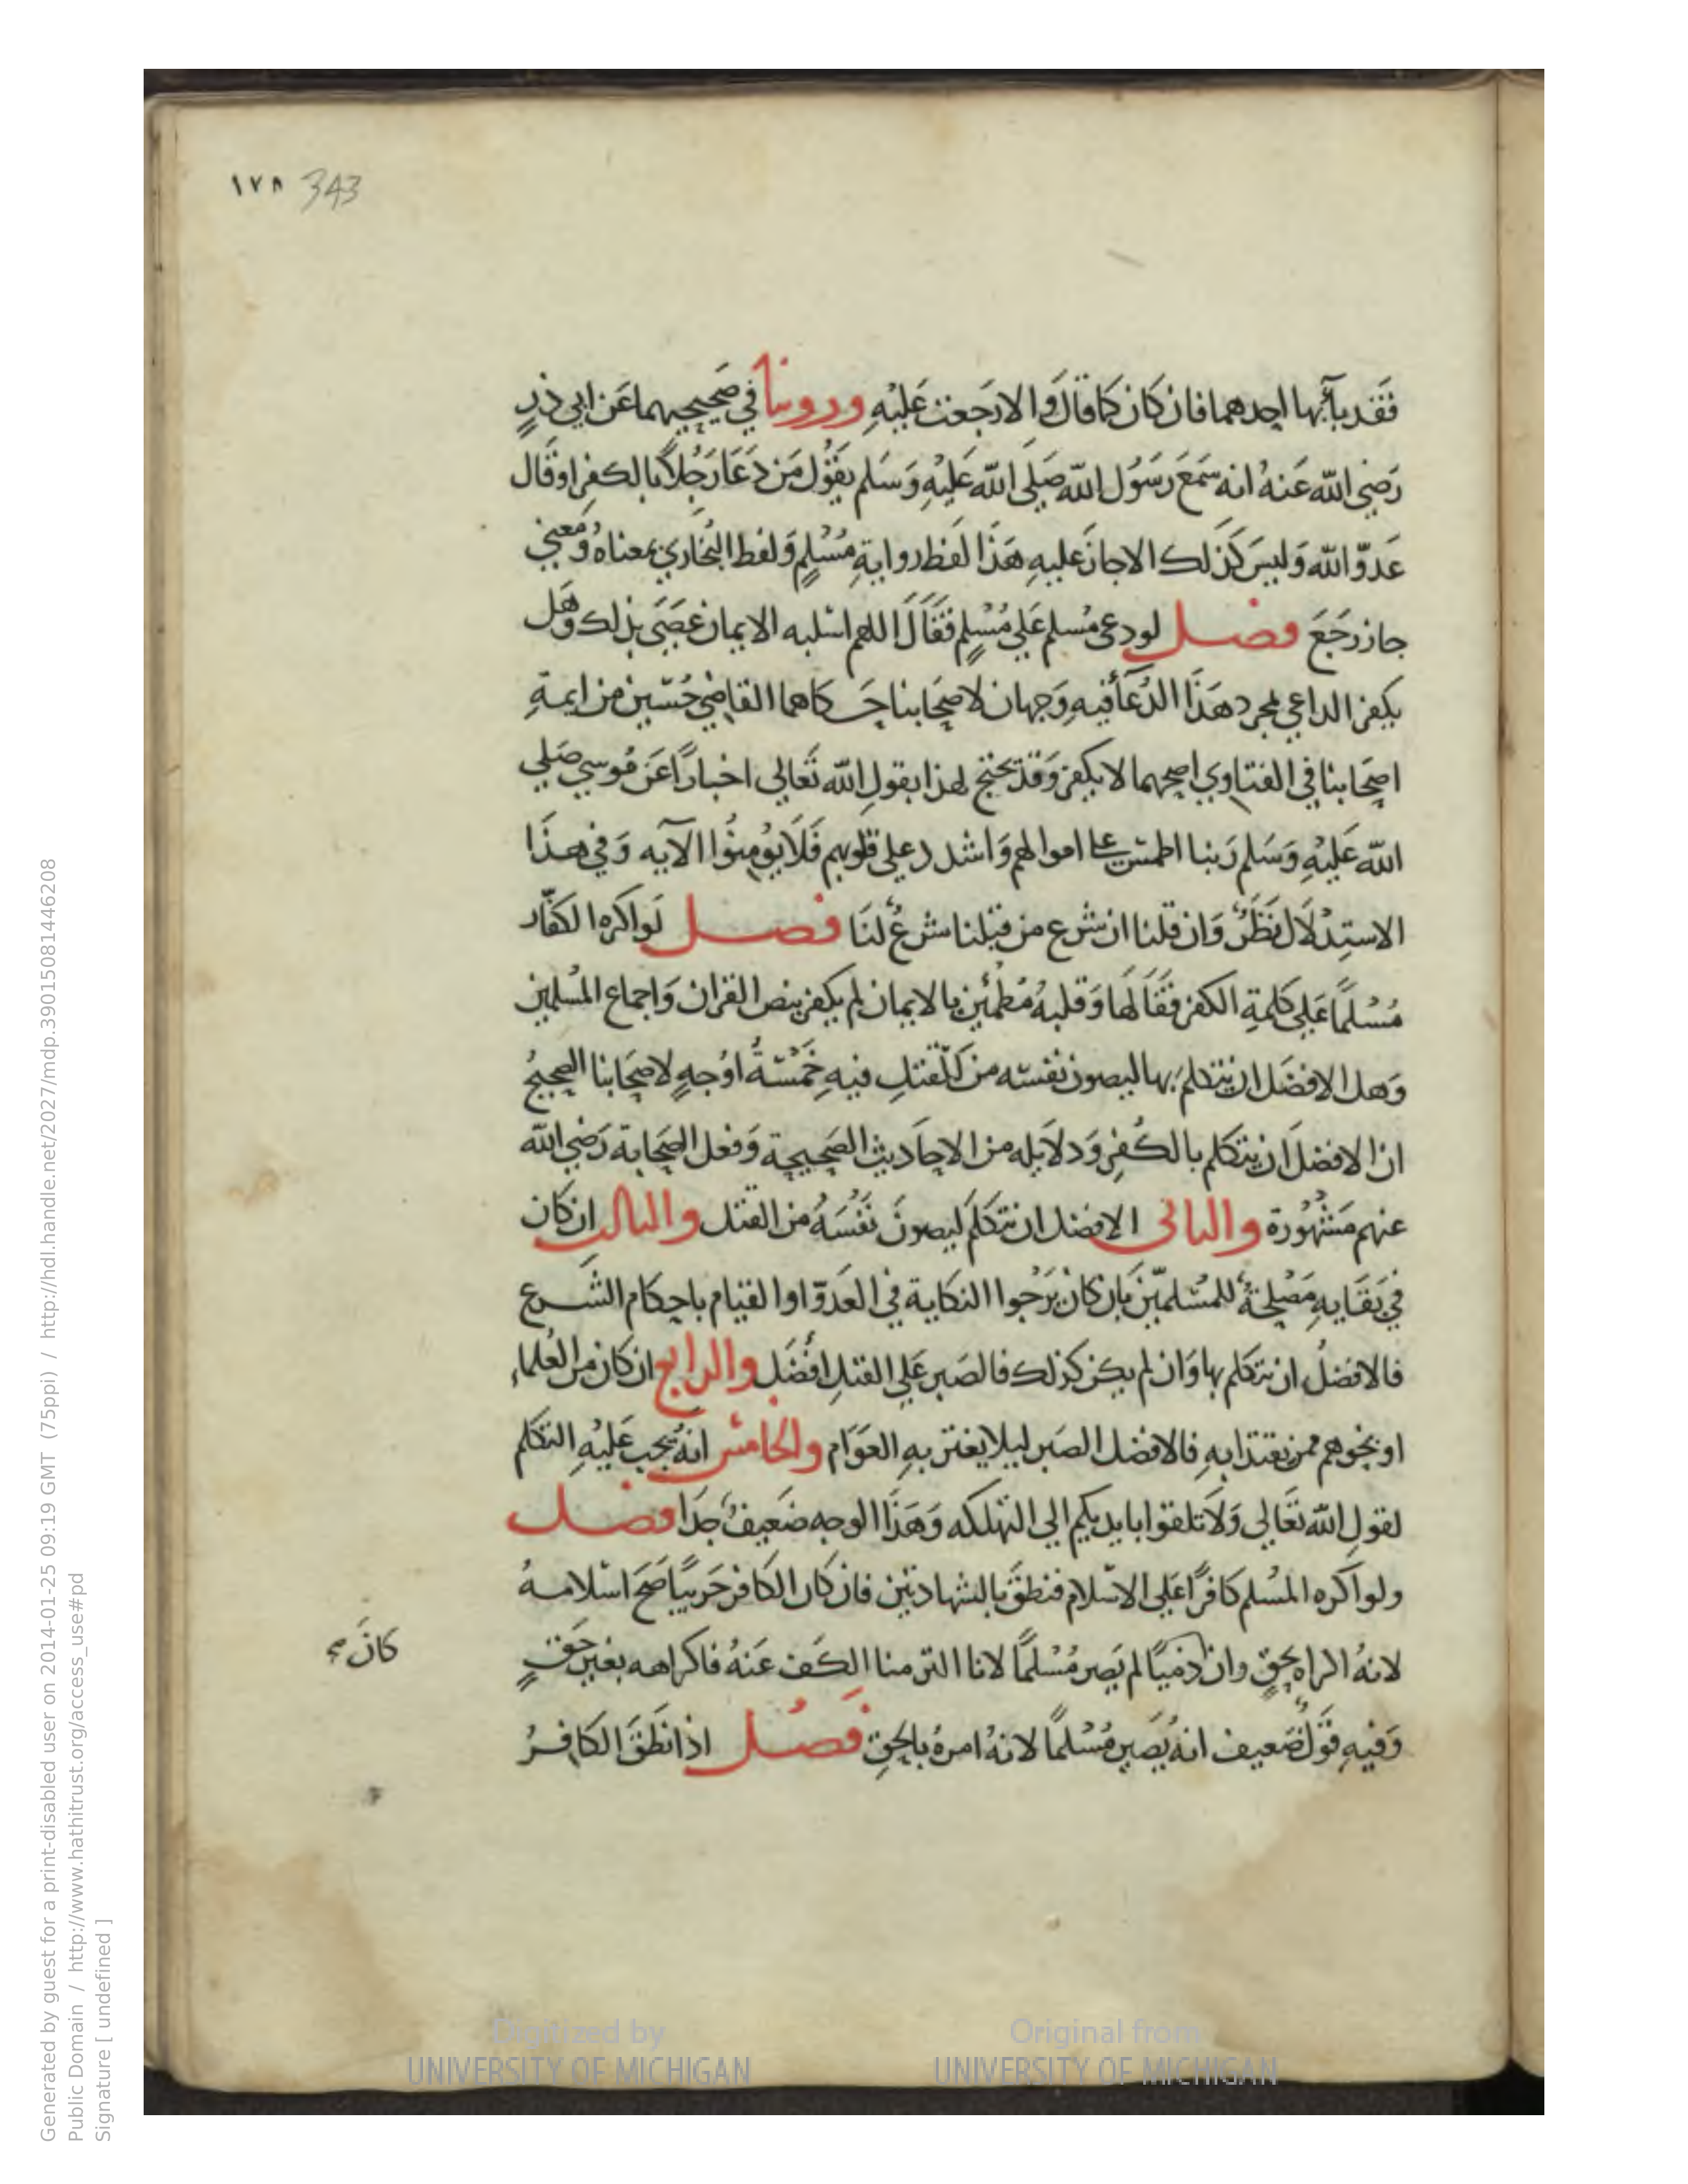 ١٧٨ 343
فَقَد باَء بها احدهما فان كان كما قال وَالا رجعت عَليْهِ وروينا في صَحيحيهما عَن ابي ذرٍ
رَضي الله عَنهُ انه سَمعَ رسَوُل الله صَلى الله عَليْهِ وَسَلم يقوُل مَن دَعَا رَجُلاً بالكفر اوقال
عَدوّ الله وَليسَ كَذلك الا جازَ عليهِ هَذا لفظ روايةِ مُسْلمٍ وَلفظ البُخاري بمعناهُ وَمعني
جاز رَجَعَ فصل لودعى مُسلم عَلي مُسْلمٍ فقَالَ اللهم اسلبه الايمان عصَىَ بذلك وَهَل
يكفر الداعي لمجرد هَذا الدُعَأ فيهِ وَجهان لاصحَابنا حَكاهما القاضي حُسَين من ايمةِ
اصحَابنا في الفتاوي اصحهما لا يكفر وَقد يحتج لهذا بقولِ الله تَعالى اخبارًا عَن مُوسي صَلي
الله عَليْهِ وَسَلم رَبنا اطمس على اموالهم وَاشدد على قلوبهم فَلاَ يوُمنوُا الآيه وَفي هذَا
الاستدْلاَل نظَرٌ وَان قلنا ان شرع من قبلنا شرعٌ لنَا فصل لَو اكره الكفّار
مُسْلمًا عَلى كلمةِ الكفر فقَالهَا وَقلبهُ مُطمئن بالايمان لم يكفر بنص القران وَاجماع المُسلمين
وَهل الافضَل ان يتكلمَ بها ليصون نفسَه من القتلِ فيهِ خَمْسَةُ اوُجهٍ لاصحَابنا الصحيحُ
ان الافضلَ ان يتكلم بالكُفرِ وَدلايله من الاحَاديث الصَحيحة وَفعل الصحَابة رَضي الله
عنهم مَشْهُورة والثاني الافضل ان يتكلمَ ليصونَ نفْسَهُ من القتل والثالث ان كان
في بقَايهِ مَصْلحةٌ للمُسْلمين بَان كان يَرْجوا النكاية في العَدوّ او القيام باحكام الشَرع
فالافضلُ ان يتكلم بها وَان لم يكن كذلك فالصَبر عَلي القتل افْضَل والرابع ان كان من العُلماء
اونحوهم ممن يقتدا بهِ فالافضل الصَبر ليلا يغتر بهِ العَوَام والخامس انهُ يجب عَليْهِ التكلم
لقولِ الله تعَالي وَلاَ تلقوا بايديكم الي التهلكه وَهَذا الوجه ضَعيفٌ جدَا فصل
ولو اكره المُسلم كافرًا عَلى الاسلام فنطقَ بالشهادتين فان كان الكافر حَربيًا صَحَ اسْلامهُ
لانهُ اكراه بحقٍ وان ذميًا لم يَصر مُسْلمًا لانا التزمنا الكَف عَنهُ فاكراهه بغير حَقٍ
كانَ صح
وَفيهِ قوَلٌ ضَعيف انهُ يَصير مُسْلمًا لانهُ امرهُ بالحقِ فصَل اذا نطَقَ الكافرُ
Generated by guest for a print-disabled user on 2014-01-25 09:19 GMT (75ppi) / http://hdl.handle.net/2027/mdp.39015081446208
Public Domain / http://www.hathitrust.org/access_use#pd
Signature [ undefined ]
Digitized by
UNIVERSITY OF MICHIGAN
Original from
UNIVERSITY OF MICHIGAN